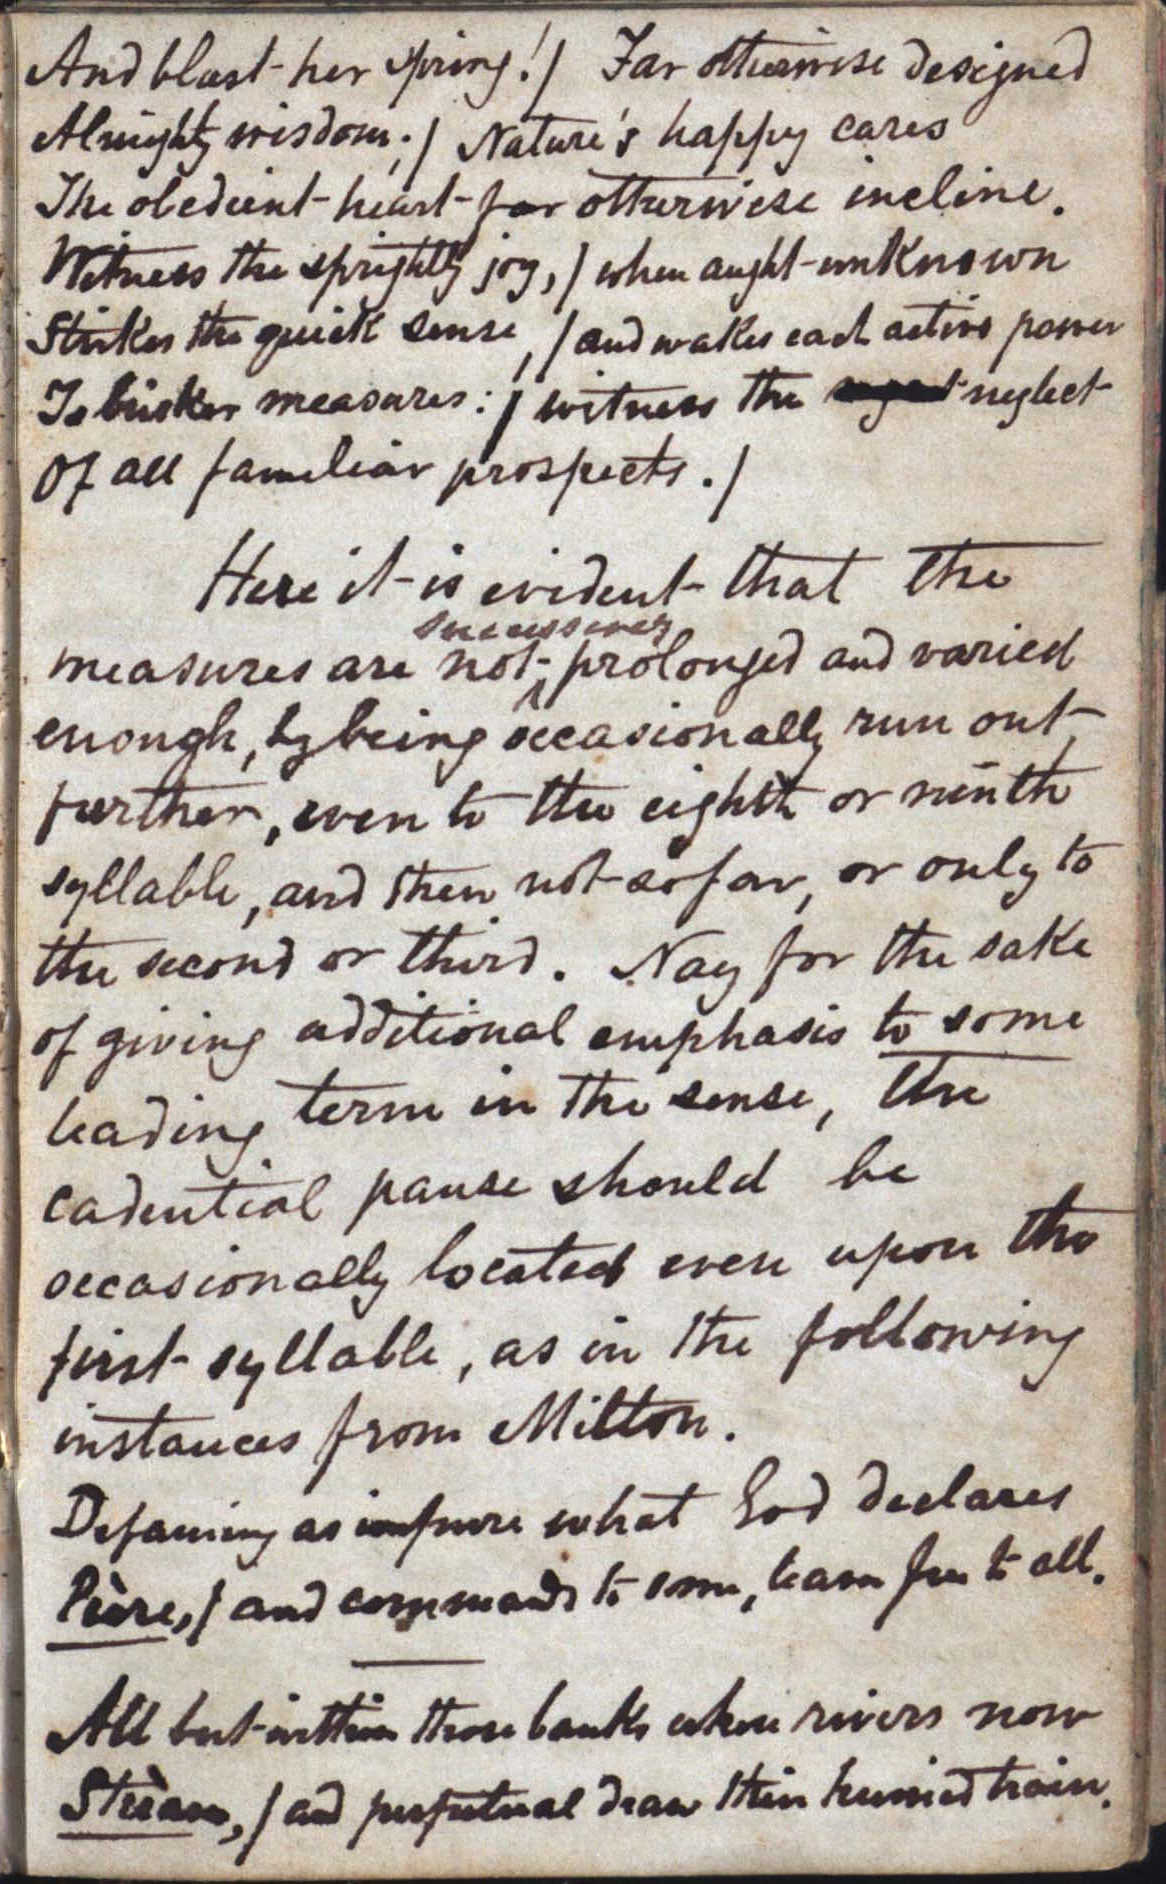 And blast her spring!/ Far otherwise designed
Almighty wisdom;/ Nature's happy cares
The obedient heart far otherwise incline.
Witness the sprightly joy,/ when aught unknown
Strikes the quick sense,/ and wakes each active power
To brisker measures:/ witness the neglect
Of all familiar prospects./
Here it is evident that the
successively
measures are not ^ prolonged and varied
enough, by being occasionally run out
further, even to the eighth or ninth
syllable, and then not so far, or only to
the second or third. Nay for the sake
of giving additional emphasis to some
leading term in the sense, the
cadential pause should be
occasionally located even upon the
first syllable, as in the following
instances from Milton.
Defaming as impure what God declares
Pùre,/ and commands to some, leave free to all.
All but within those banks where rivers now
Strèam,/ and perpetual draw their humid train.